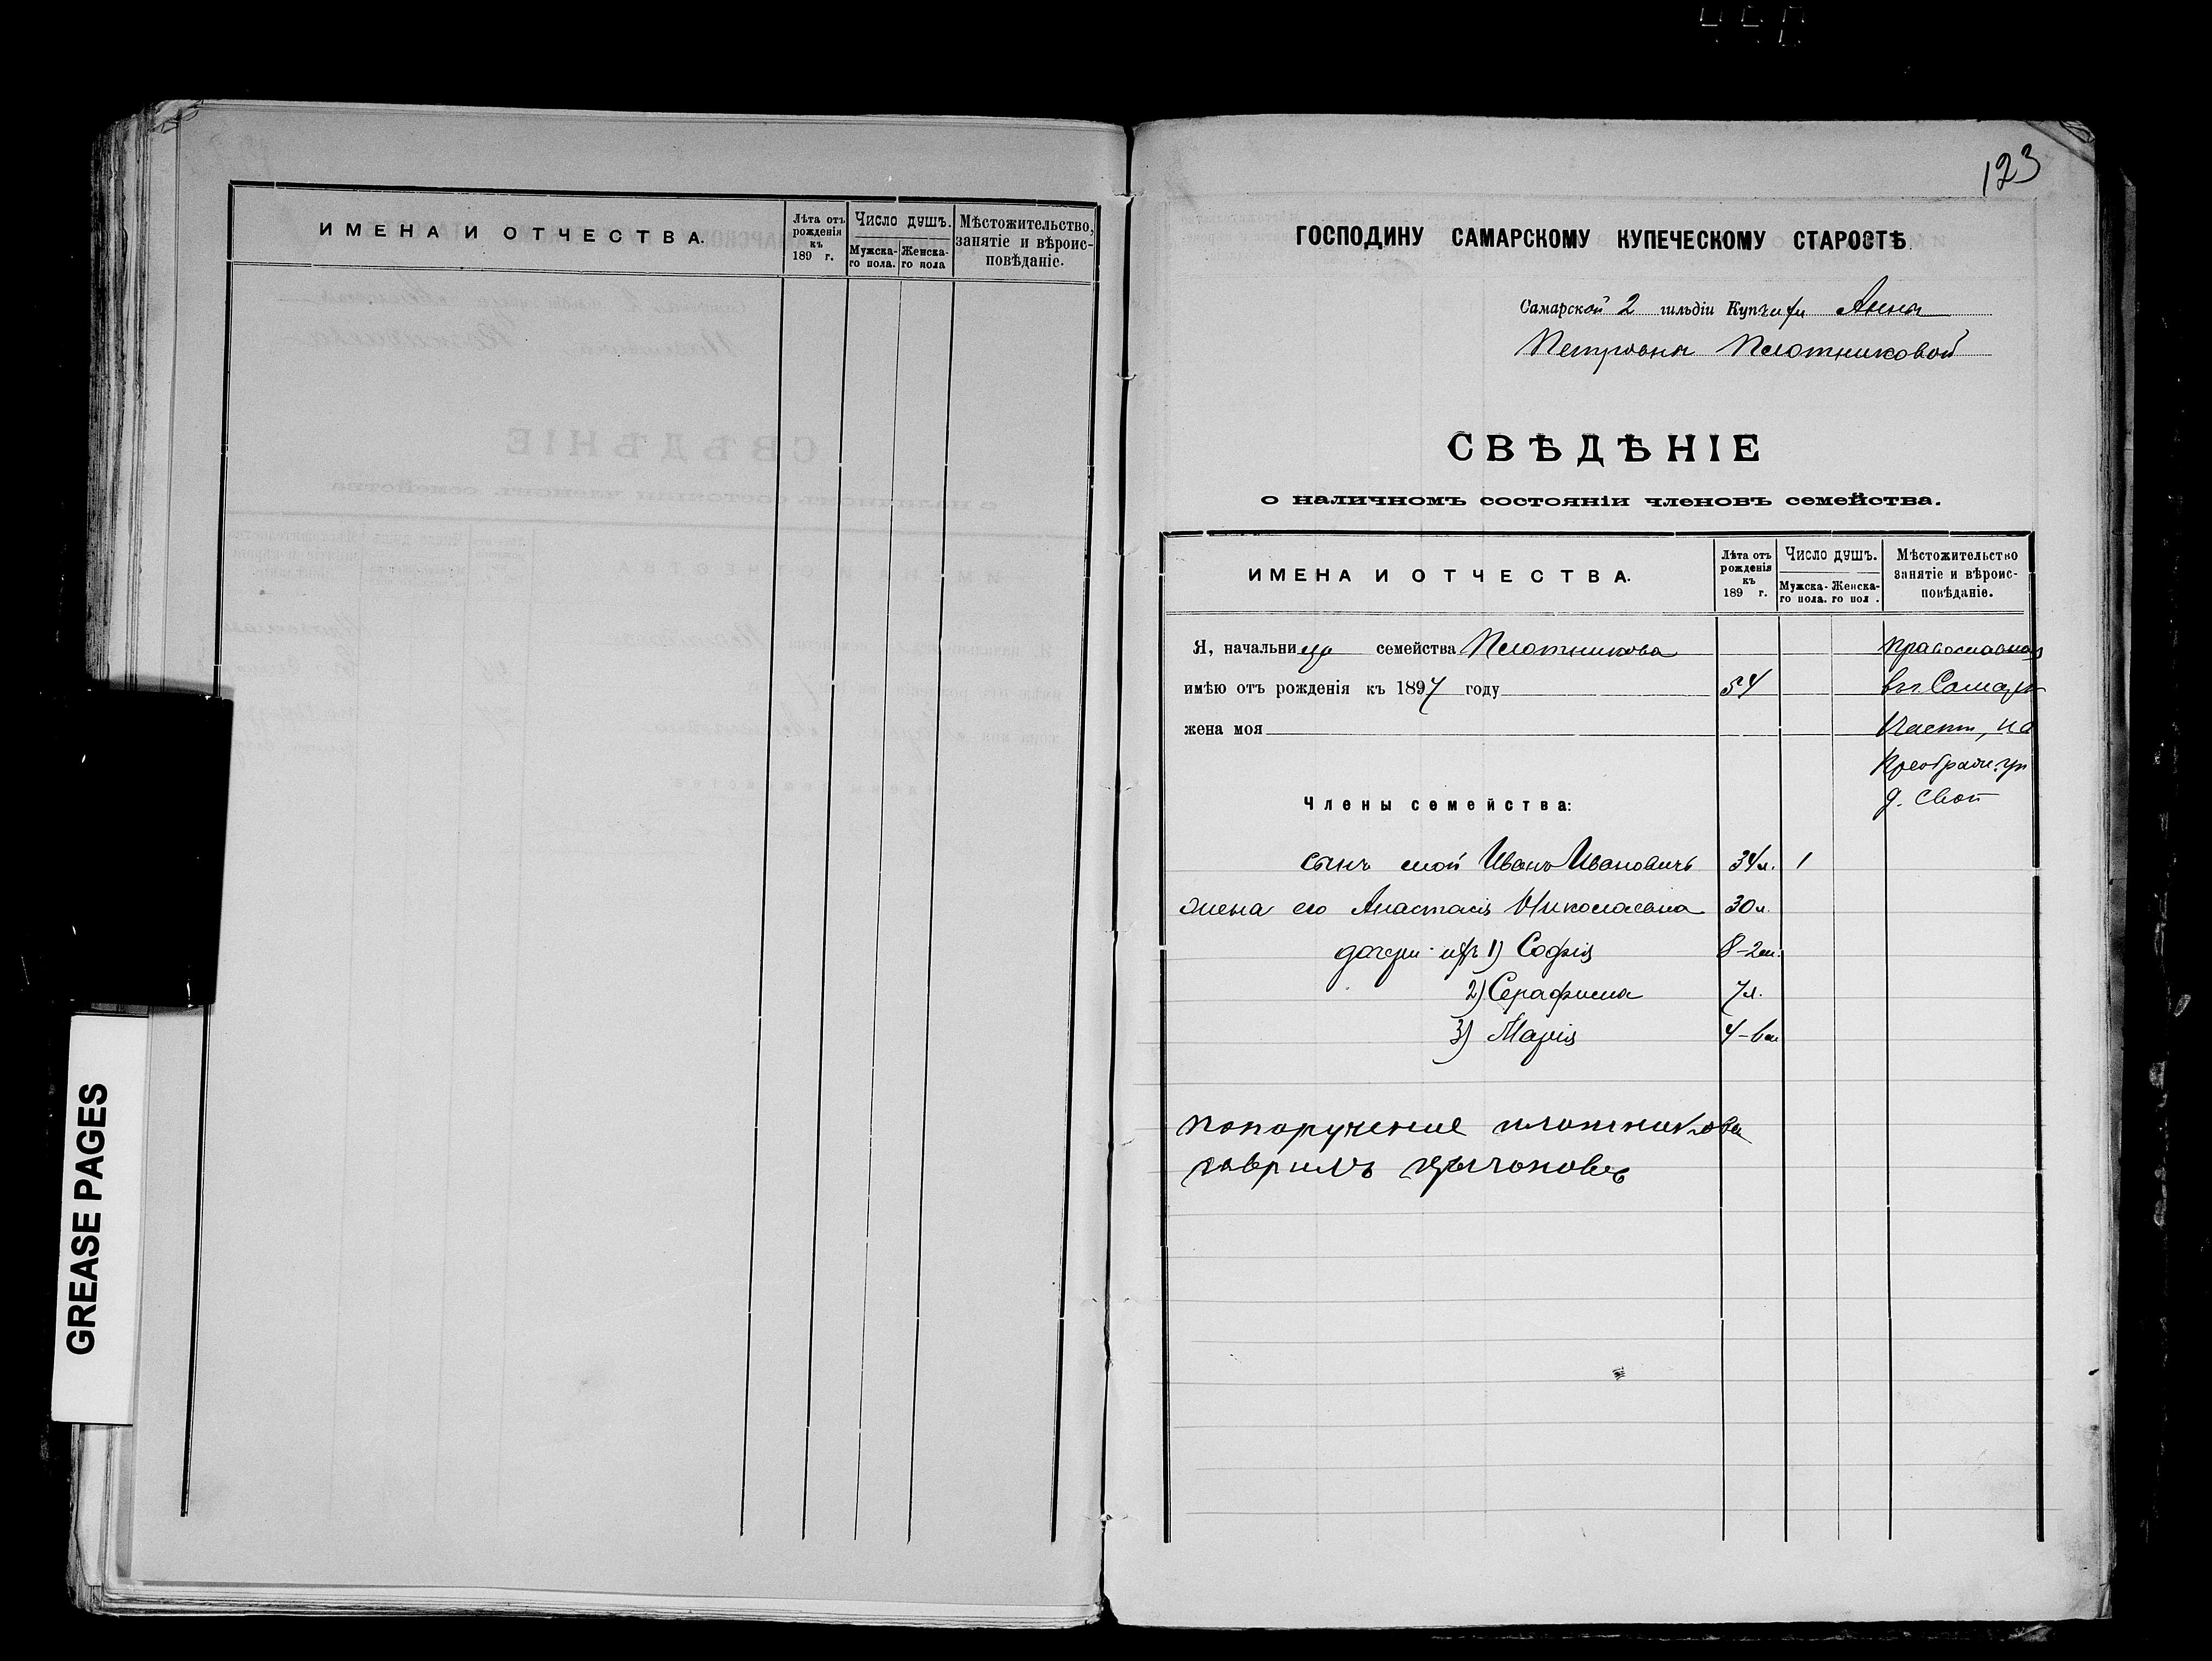 ИМЕНА И ОТЧЕСТВА.
Лѣта отъ рожденія къ 189 г.
Число душъ.
Мужска-го пола.
Женска-го пола
Мѣстожительство, занятіе и вѣроис-повѣданіе.
GREASE PAGES
123
ГОСПОДИНУ САМАРСКОМУ КУПЕЧЕСКОМУ СТАРОСТѢ.
Самарской 2 гильдіи Купчихи Анны
Петровны Плотниковой
СВѢДѢНІЕ
о наличномъ состояніи членовъ семейства.
ИМЕНА И ОТЧЕСТВА.
Лѣта отъ рожденія къ 189 г.
Число душъ.
Мужска-го пола.
Женска-го пол .
Мѣстожительство занятіе и вѣроис-повѣданіе.
Я, начальница семейства Плотникова Православная
имѣю отъ рожденія къ 1897 году 54 въ Самарѣ
жена моя част, на
Преображ. ул
д. свой
Члены семейства:
сынъ мой Иванъ Ивановичъ 34 л. 1
жена его Анастасія Николаевна 30 л.
дочери ихъ 1) Софія 8-2 м.
2) Серафима 7 л.
3) Марія 4-6 м
попоручение плотникова
гаврилъ